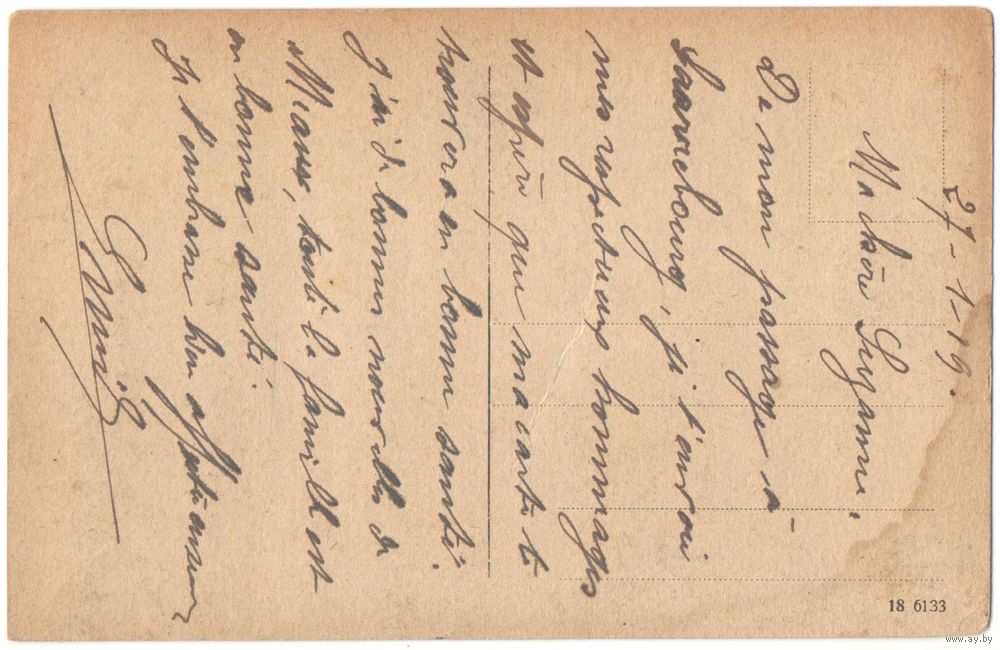 27-1-19.
Ma chère Suzanne,
De mon passage à
Sarrebourg, je t'envoie
mes respectueux hommages
et espère que ma carte te
trouvera en bonne santé.
J'ai de bonnes nouvelles de
toute la famille est
en bonne santé.
Je t'embrasse bien affectueusement
18 6133
www.ay.by